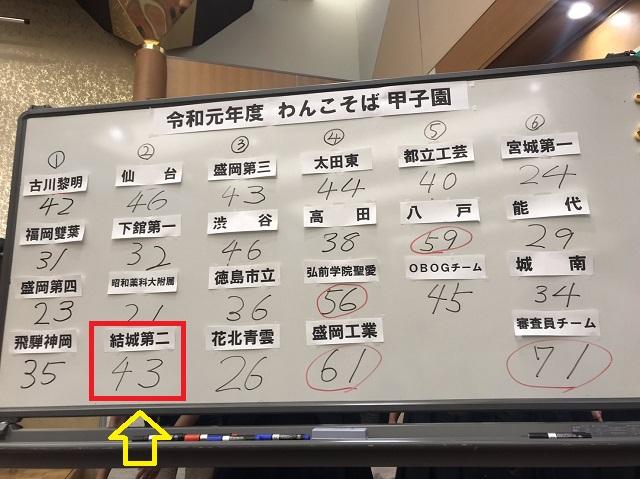 令和元年度 わんこそば 甲子園
① ② ③ ④ ⑤ ⑥
古川黎明 仙台 盛岡第三 太田東 都立工芸 宮城第一
42 46 43 44 40 24
福岡雙葉 下舘第一 渋谷 高田 八戸 能代
31 32 46 38 59 29
盛岡第四 昭和薬科大附属 徳島市立 弘前学院聖愛 OBOGチーム 城南
23 21 36 56 45 34
飛騨神岡 結城第二 花北青雲 盛岡工業 審査員チーム
35 43 26 61 71